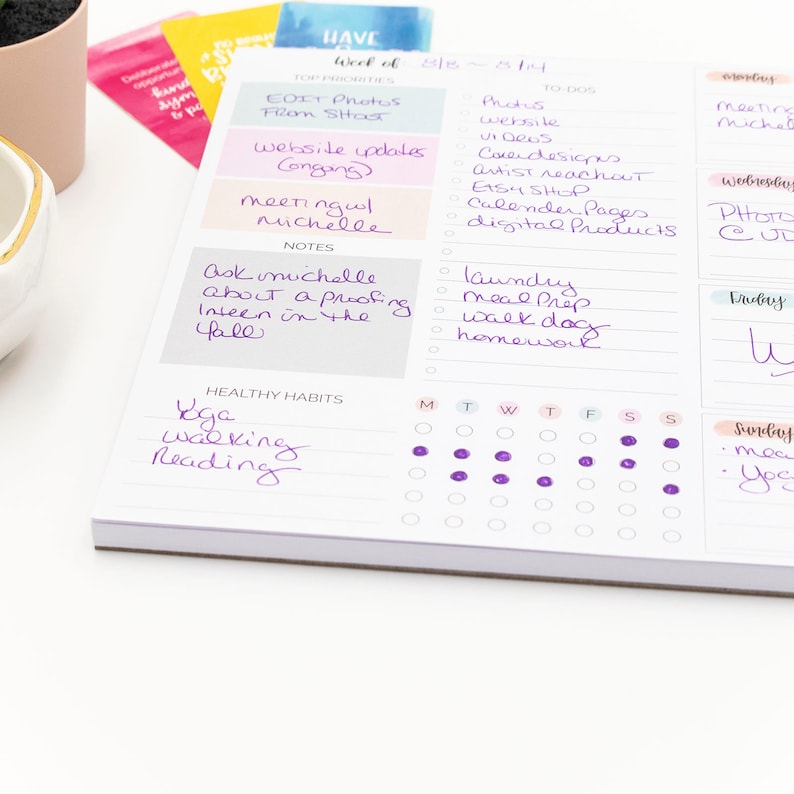 Deliberate
opportun
kind
sym
& p
HAVE
Week of 8/8 ~ 8/14
TOP PRIORITIES
EDIT Photos
From SHoot
website updates
(ongoing)
meeting w/
michelle
NOTES
ask michelle
about a proofing
Intern in the
fall
TO-DOS
Photos
website
videos
Cover designs
artist reachout
Etsy SHOP
Calender Pages
digital Products
laundry
meal prep
walk dog
homework
HEALTHY HABITS
Yoga
walking
Reading
M T W T F S S
monday
meeting
michell
Wednesday
PHoto
Friday
W
Sunday
• mea
• Yog